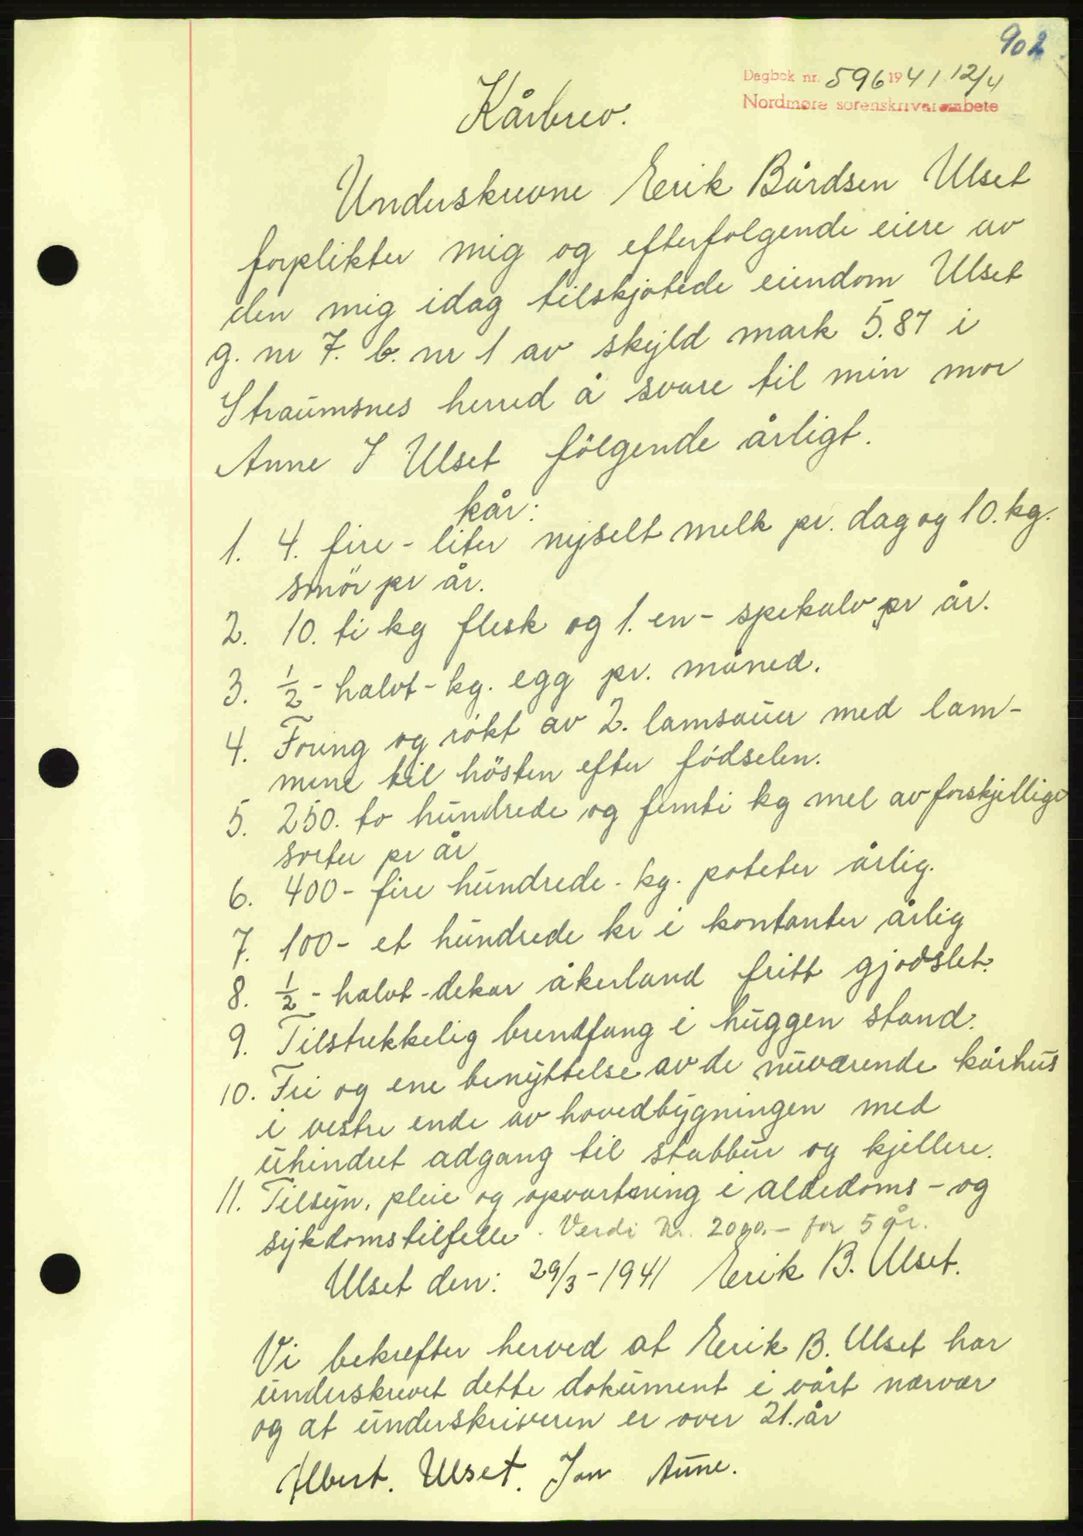 902
Dagbok nr. 596 1941 12/4
Nordmøre sorenskriverembete
Kårbrev.
Underskrevne Erik Bårdsen Ulset
forplikter mig og efterfølgende eiere av
den mig idag tilskjøtede eiendom Ulset
g. nr 7. b. nr 1 av skyld mark 5.87 i
Straumsnes herred å svare til min mor
Anne J Ulset følgende årligt.
kår:
1. 4. fire - liter nyselt melk pr. dag og 10. kg.
smör pr år.
2. 10. ti kg flesk og 1. en - spekalv pr år.
3. ½ - halvt - kg. egg pr. måned.
4. Foring og røkt av 2. lamsauer med lam-
mene til hösten efter födselen.
5. 250. to hundrede og femti kg mel av forskjellige
sorter pr år
6. 400 - fire hundrede - kg. poteter årlig.
7. 100 - et hundrede kr i kontanter årlig
8. ½ - halvt - dekar åkerland fritt gjødslet.
9. Tilstrekkelig brendfang i huggen stand.
10. Fri og ene benyttelse av de nuværende kårhus
i vestre ende av hovedbygningen med
uhindret adgang til stabbur og kjellere.
11. Tilsyn, pleie og opvartning i aldedoms - og
sykdomstilfelle. Verdi kr. 2000.- for 5 år.
Ulset den: 29/3 - 1941 Erik B. Ulset.
Vi bekrefter herved at Erik B. Ulset har
underskrevet dette dokument i vårt nærvær
og at underskriveren er over 21. år
Albert. Ulset. Jon Aune.